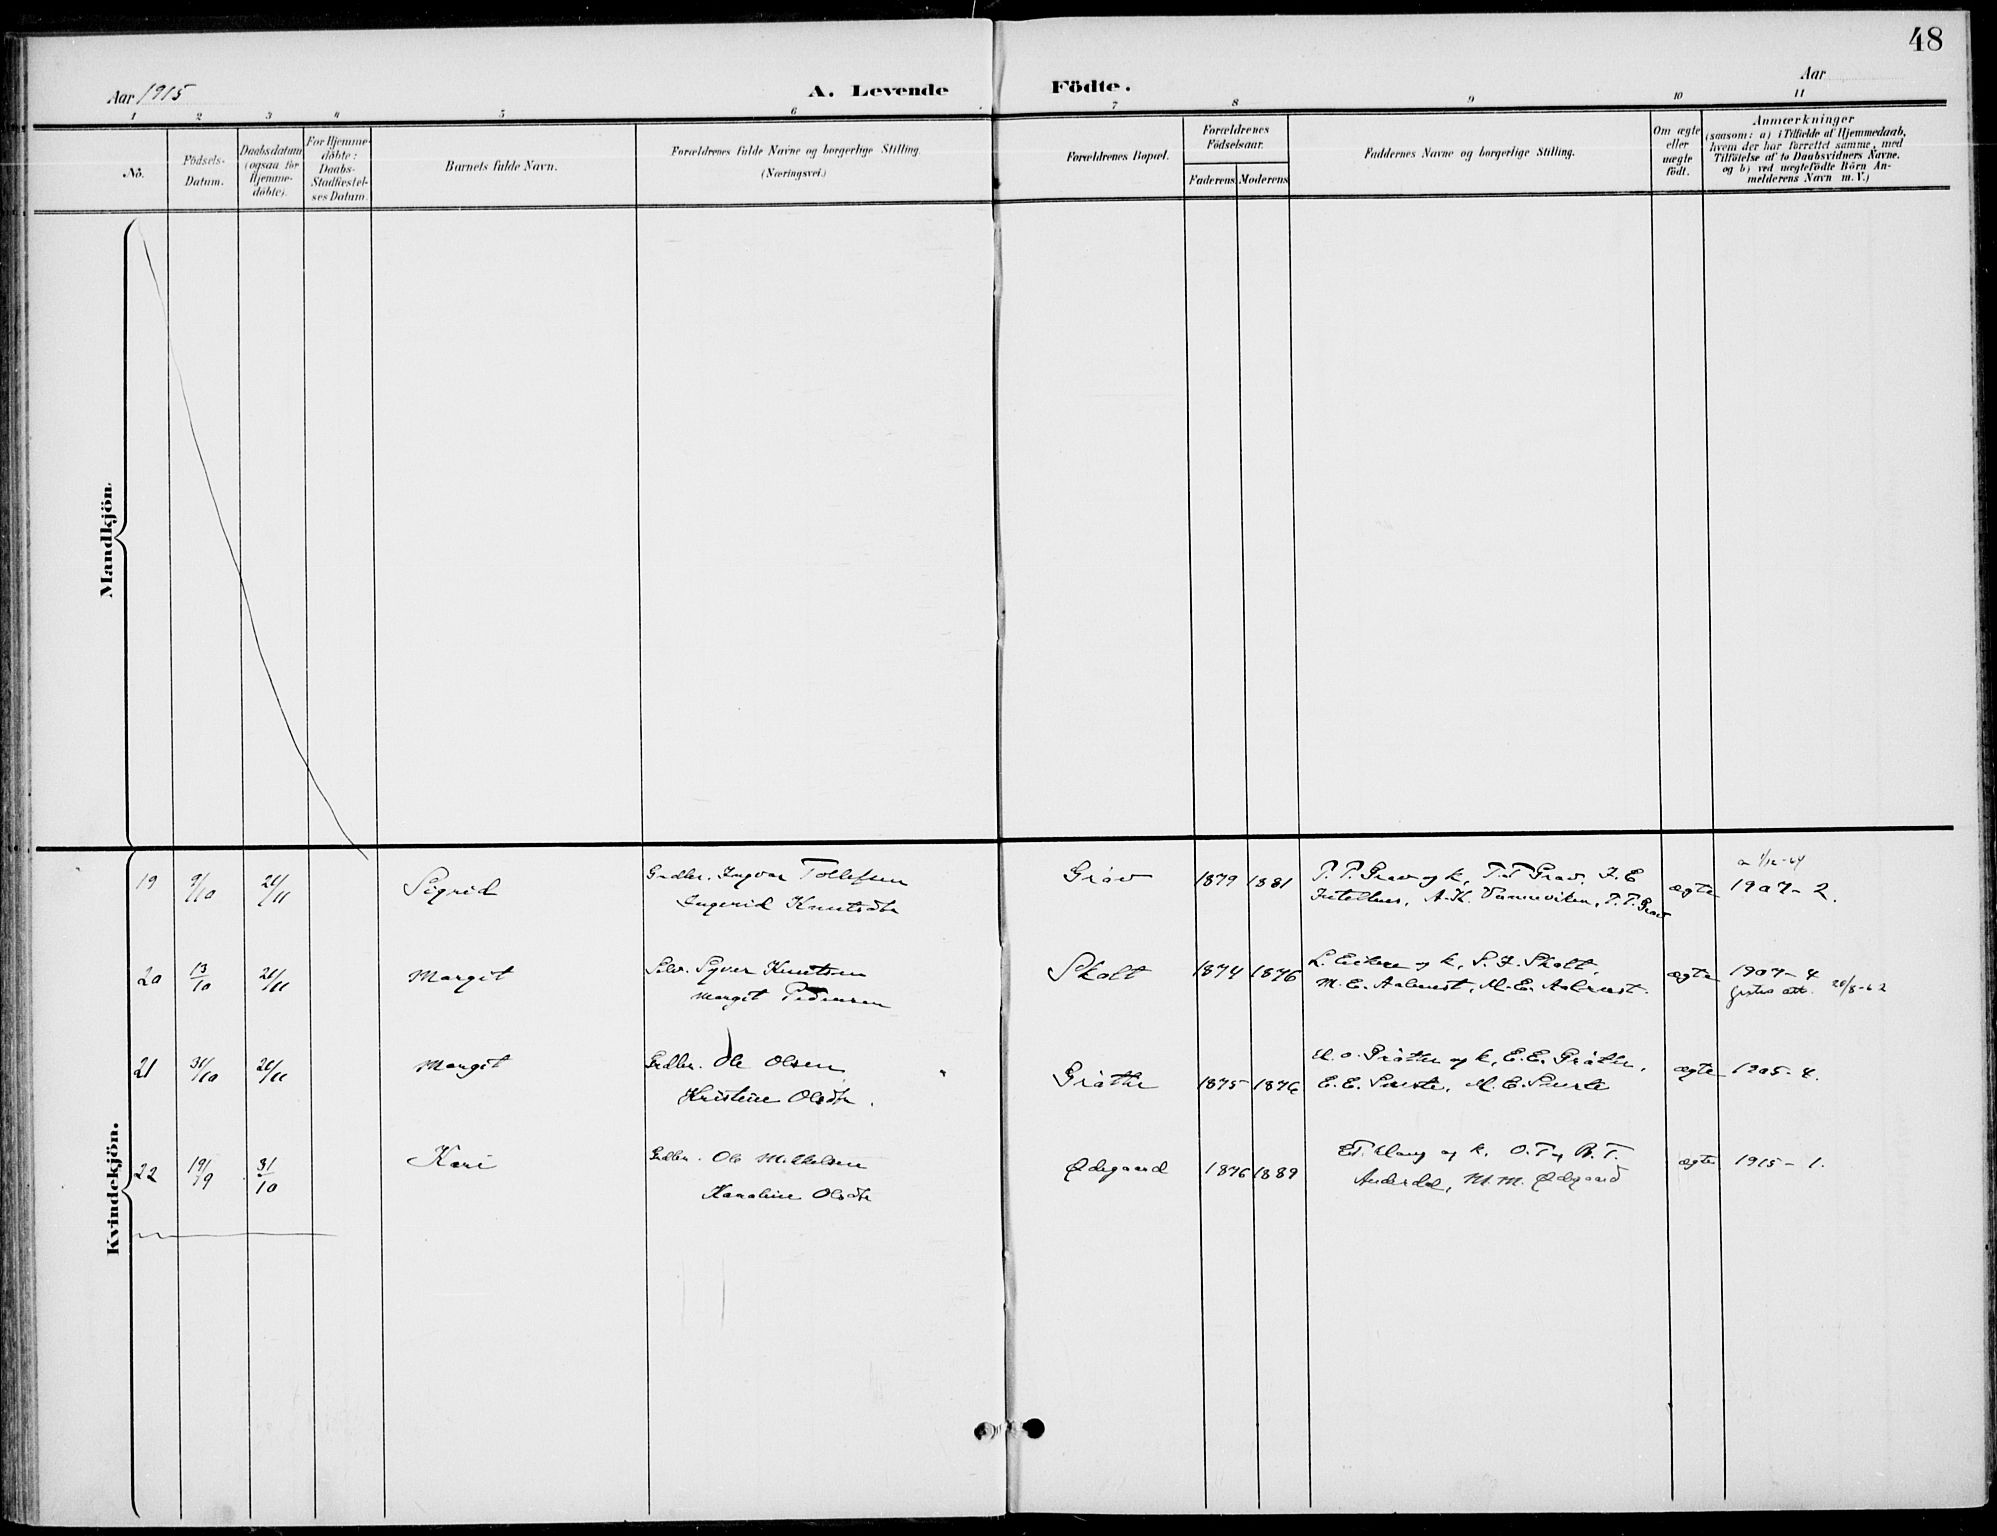 48
Aar 1915
A. Levende Födte.
Aar
1 2 3 4 5 6 7 8 9 10 11
No.
Födsels-
Datum.
Daabsdatum
(ogsaa for
Hjemme-
döbte).
For Hjemme-
döbte:
Daabs-
Stadfæstel-
ses Datum.
Barnets fulde Navn.
Forældrenes fulde Navne og borgerlige Stilling.
(Næringsvei.)
Forældrenes Bopæl.
Forældrenes
Födselsaar.
Faderens. Moderens.
Faddernes Navne og borgerlige Stilling.
Om ægte
eller
uægte
födt.
Anmærkninger
(saasom: a) i Tilfælde af Hjemmedaab,
hvem der har forrettet samme, med
Tilföielse af to Daabsvidners Navne.
og b) ved uægtefödte Börn An-
melderens Navn m. V.)
Mandkjön.
Kvindekjön.
19 9/10 21/11 Sigrid
Grdbr. Ingvar Tollefsen
Ingerid Knutsdtr
Gråv 1879 1881
T. T. Grav og k, T. T. Grav,
ægte
1907 - 2.
20 13/10 21/11 Margit
Selv. Syver Knutsen
Margit Pedersen
Skolt 1874 1876
og k, S. Skolt,
ægte
1907 - 4
21 31/10 21/11 Margit
Grdbr. Ole Olsen
Kristine Olsdtr.
Gråthe 1875 1876
og k, E. E. Gråthe,
ægte
1905 - 4.
22 19/9 31/10 Kari
Grdbr. Ole Mikkelsen
Karoline Olsdtr
Ødegaard 1876 1889
og k. O. T. og B. T.
M. M. Ødegaard
ægte
1915 - 1.